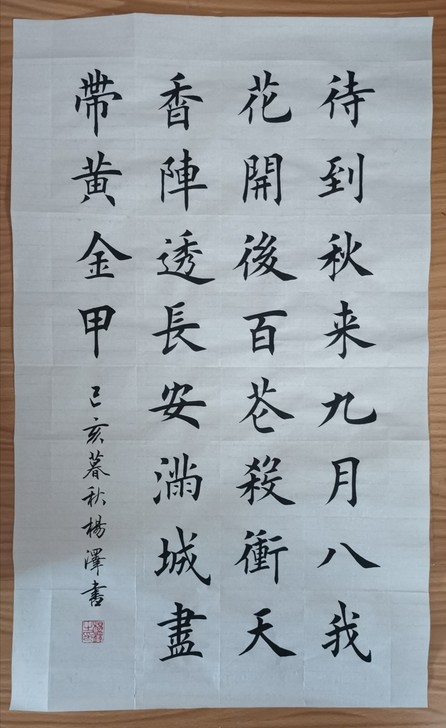 待到秋来九月八我
花開後百芲殺衝天
香陣透長安滿城盡
帶黄金甲
己亥暮秋楊澤書